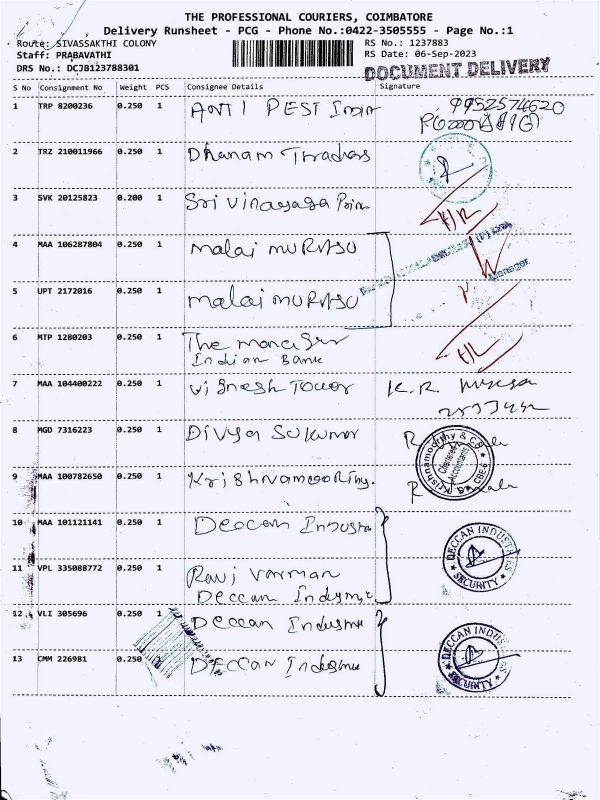 THE PROFESSIONAL COURIERS, COIMBATORE
Delivery Runsheet - PCG - Phone No.:0422-3505555 - Page No.:1
Route: SIVASSAKTHI COLONY
Staff: PRABAVATHI
DRS No.: DCJB123788301
RS No.: 1237883
RS Date: 06-Sep-2023
DOCUMENT DELIVERY
S No Consignment No Weight PCS Consignee Details Signature
1 TRP 8200236 0.250 1 ANTI PEST 9952574620
2 TRZ 210011966 0.250 1 Dhanam Traders
3 SVK 20125823 0.200 1 Sri Vinayaga
4 MAA 106287804 0.250 1 malai MURASU
Manager
5 UPT 2172016 0.250 1 malai MURASU
6 MTP 1280203 0.250 1 The manager
Indian Bank
7 MAA 104400222 0.250 1 Vignesh Tower K.R.
8 MGD 7316223 0.250 1 Divya Sukumar
Krishnamoorthy & Co
Chartered Accountants
CBE-6
9 MAA 100782650 0.250 1 Krishnamoorthy.
10 MAA 101121141 0.250 1 Deccan
DECCAN INDUSTRIES
SECURITY
11 VPL 335088772 0.250 1 Ravi Varman
Deccan
12 VLI 305696 0.250 1 Deccan
DECCAN INDUS
SECURITY
13 CMM 226981 0.250 DECCAN